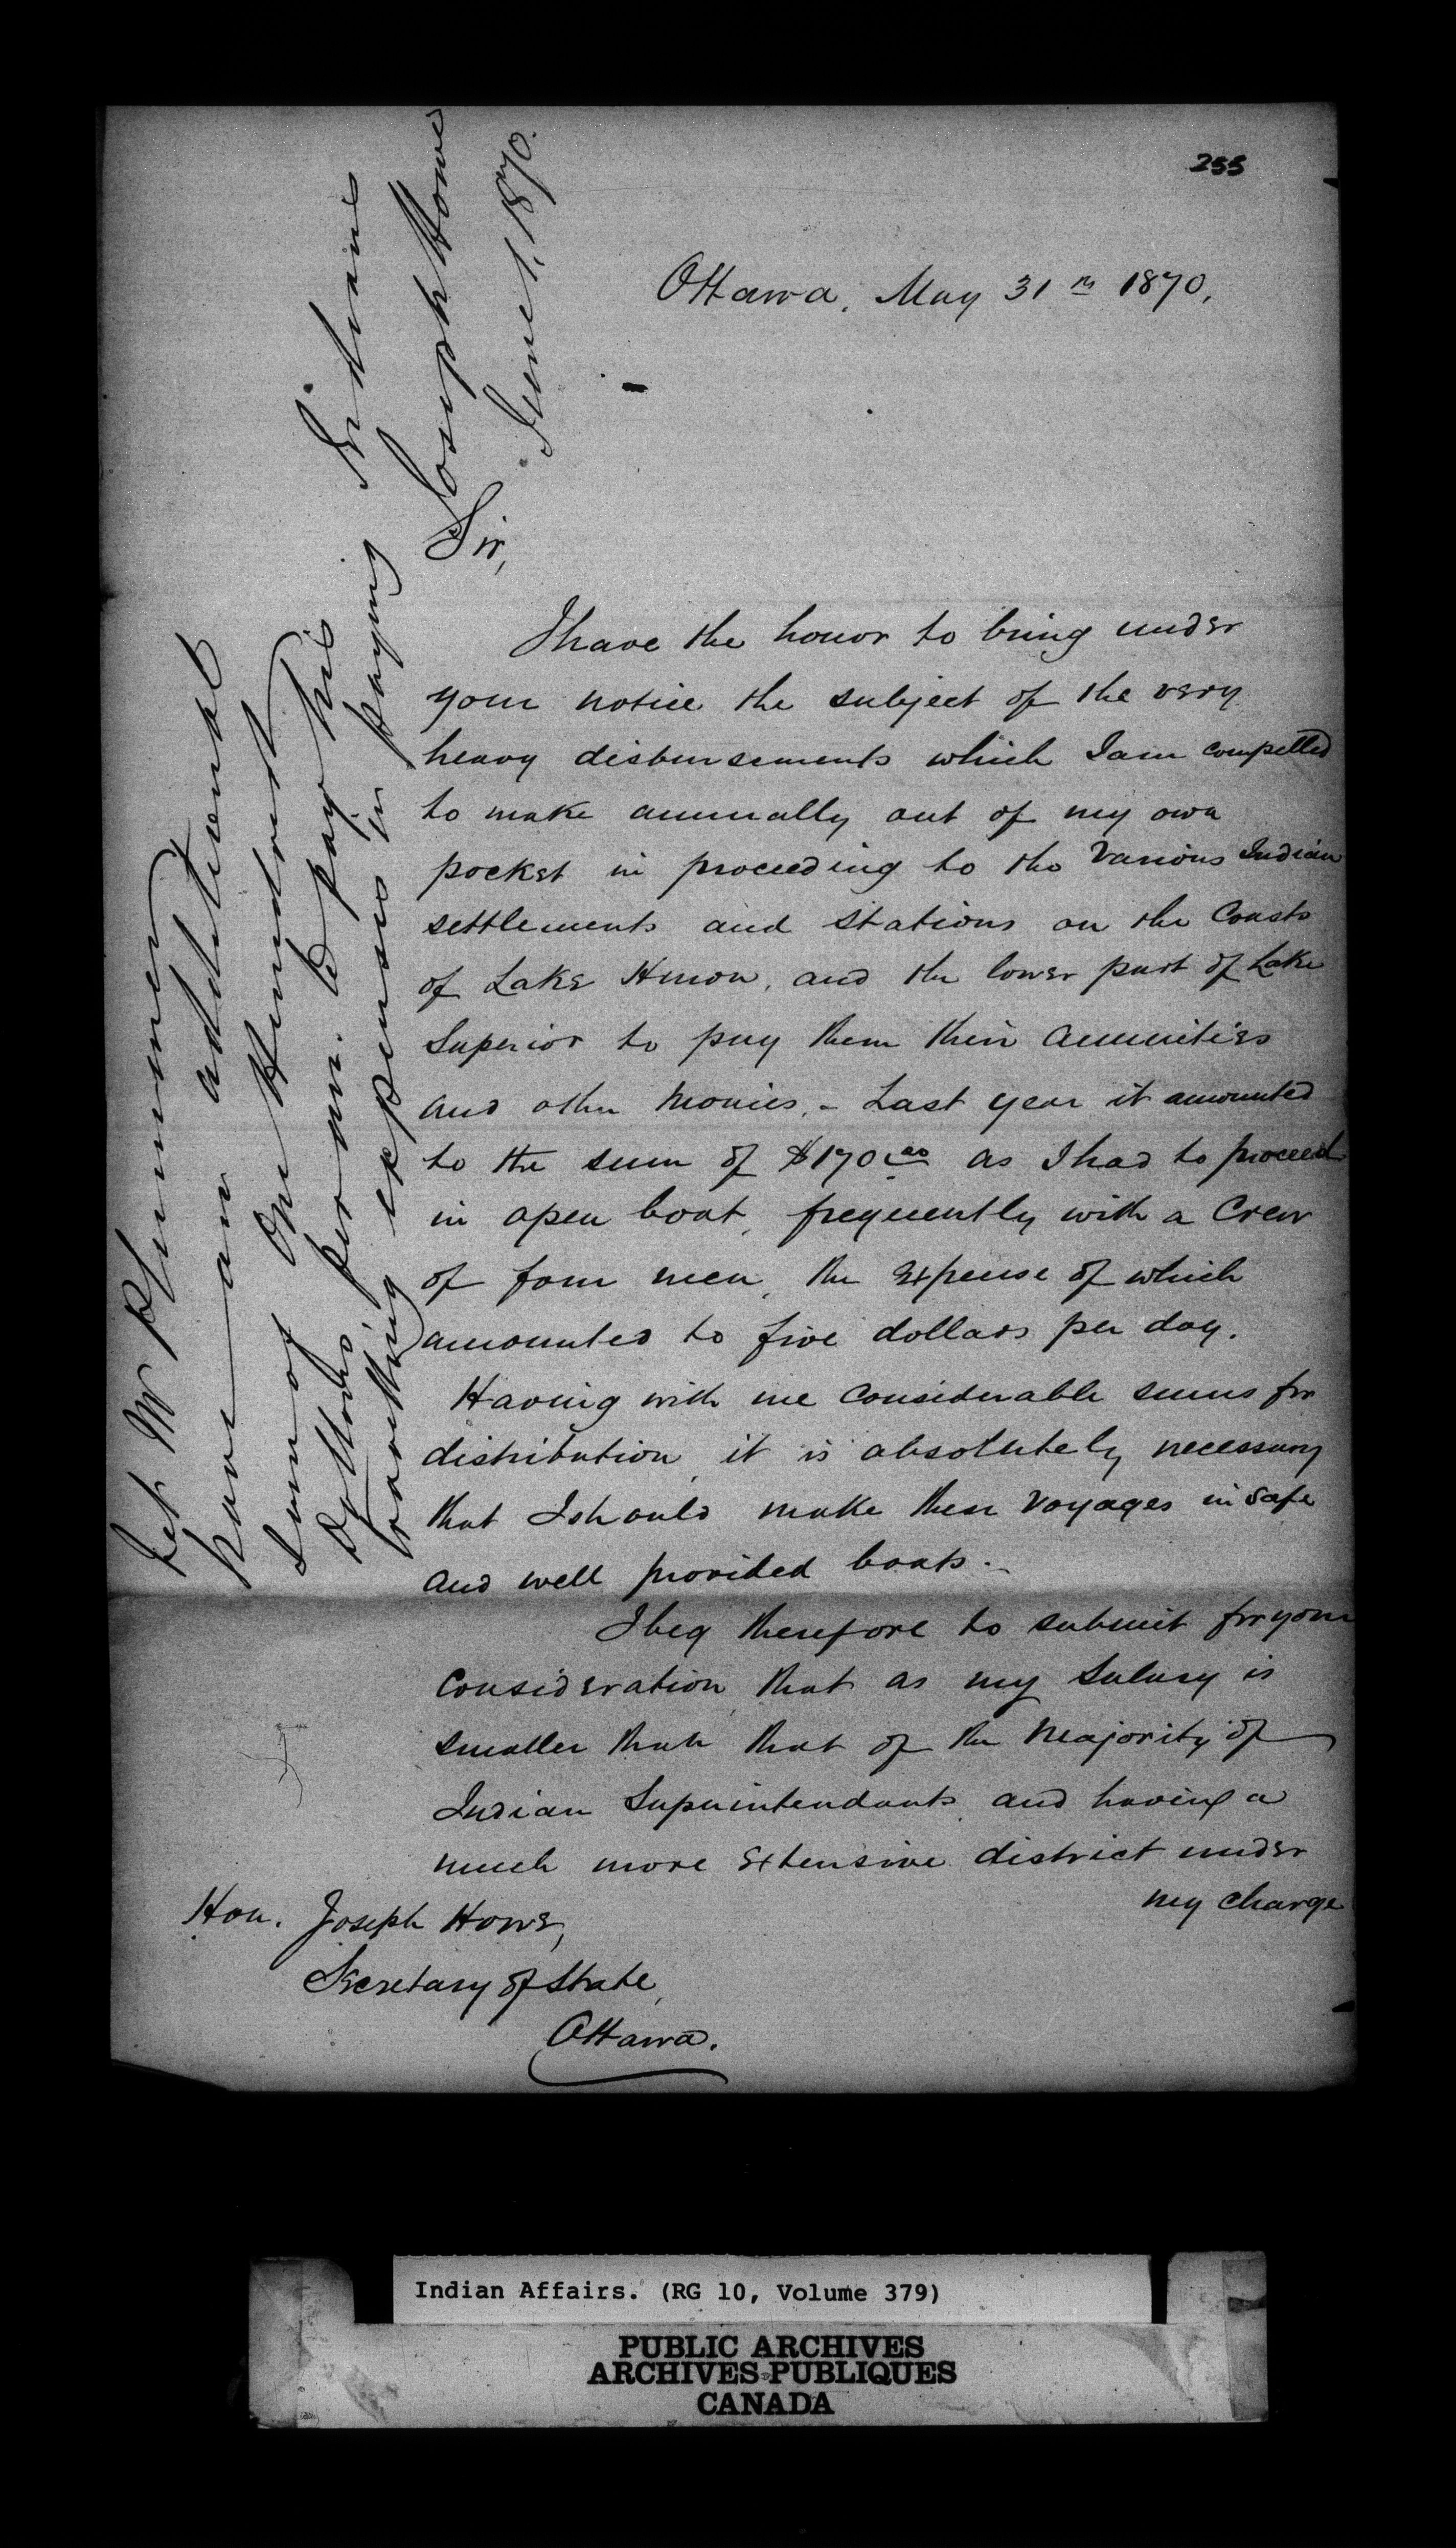 255
Ottawa, May 31st 1870,
Sir,
I have the honor to bring under
your notice the subject of the very
heavy disbursements which I am compelled
to make annually out of my own
pocket in proceeding to the various Indian
settlements and stations on the Coasts
of Lake Huron, and the lower part of Lake
Superior to pay them their annuities
and other monies. - Last year it amounted
to the sum of $170.00 as I had to proceed
in open boat, frequently with a Crew
of four men, the expense of which
amounted to five dollars per day.
Having with me considerable sums for
distribution, it is absolutely necessary
that I should make these voyages in safe
and well provided boats. -
I beg therefore to submit for your
consideration, that as my salary is
smaller than that of the majority of
Indian Superintendants, and having a
much more extensive district under
my charge
Hon. Joseph Howe,
Secretary of State,
Ottawa.
Let Mr Plummer
have an additional
sum of One Hundred
Dollars, per an. to pay his
travelling expenses in paying Indians
Joseph Howe
June 1, 1870.
Indian Affairs. (RG 10, Volume 379)
PUBLIC ARCHIVES
ARCHIVES PUBLIQUES
CANADA